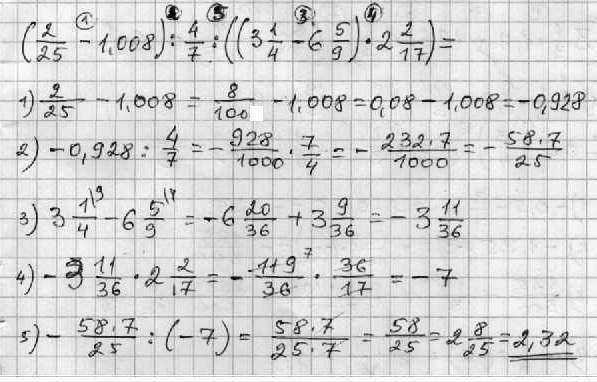 ① ② ⑤ ③ ④
(2/25 - 1,008) : 4/7 : ((3 1/4 - 6 5/9) · 2 2/17) =
1) 2/25 - 1,008 = 8/100 - 1,008 = 0,08 - 1,008 = -0,928
2) -0,928 : 4/7 = - 928/1000 · 7/4 = - 232·7/1000 = - 58·7/25
3) 3 1/4 \9 - 6 5/9 \4 = -6 20/36 + 3 9/36 = -3 11/36
4) -3 11/36 · 2 2/17 = - 119/36 7 · 36/17 = -7
5) - 58·7/25 : (-7) = 58·7/25·7 = 58/25 = 2 8/25 = 2,32